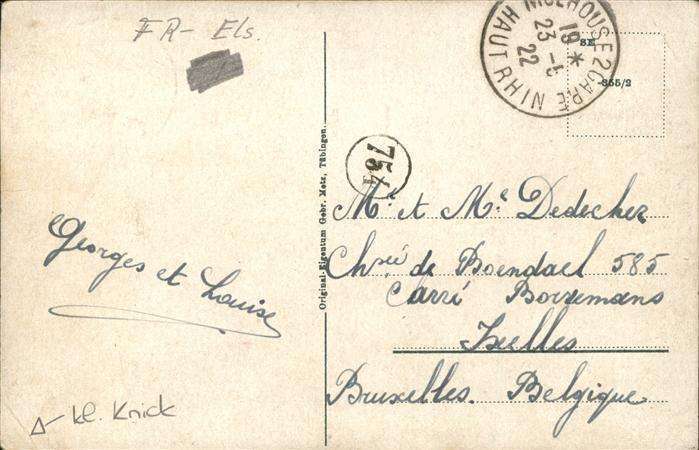 FR- Els.
MULHOUSE 2 GARE
19 *
23 -5
22
HAUT RHIN
SE
-355/2
Original-Eigentum Gebr. Metz, Tübingen.
754
Mr. et Me. Dedecher
Chsée de Boendael 585
Carré Boizemans
Ixelles
Bruxelles. Belgique
Georges et Louise
kl. Knick